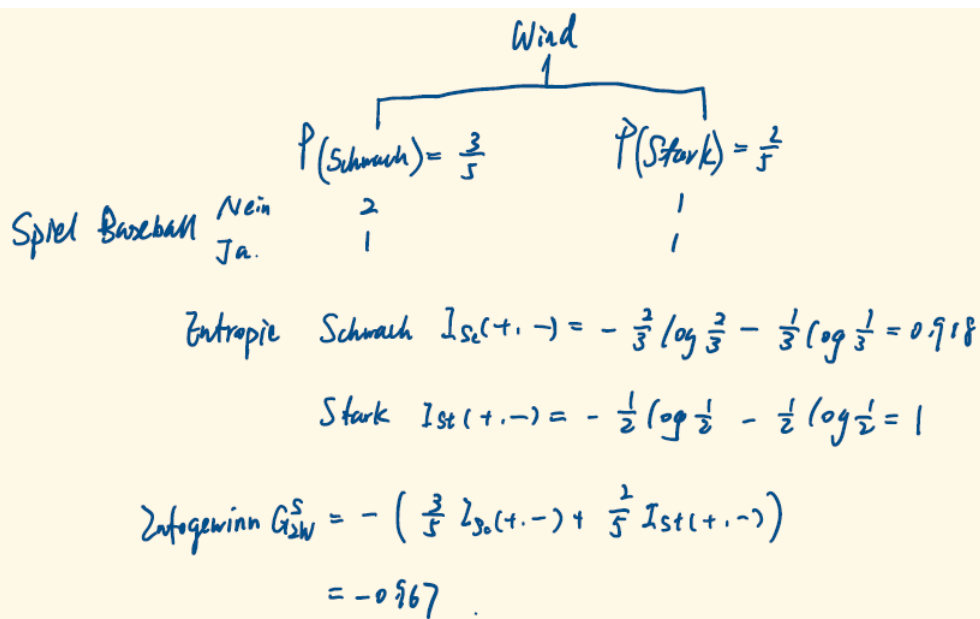 Wind
P(Schwach) = 3/5 P(Stark) = 2/5
Spiel Baseball Nein 2 1
Ja. 1 1
Entropie Schwach I_Sc(+,-) = - 2/3 log 2/3 - 1/3 log 1/3 = 0.918
Stark I_St(+,-) = - 1/2 log 1/2 - 1/2 log 1/2 = 1
Infogewinn = - ( 3/5 I_Sc(+,-) + 2/5 I_St(+,-) )
= -0.967